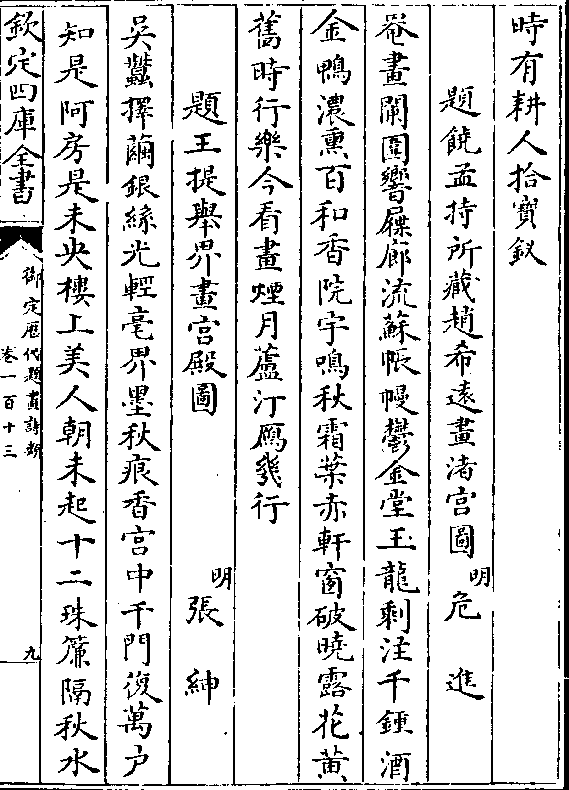 時有耕人拾寶釵
題饒孟持所藏趙希遠畫渚宮圖 明 危進
罨畫闌圍響屧廊流蘇帳幔鬱金堂玉龍剩注千鍾酒
金鴨濃熏百和香院宇鳴秋霜葉赤軒窗破曉露花黄
舊時行樂今看畫煙月蘆汀鴈幾行
題王提舉界畫宮殿圖
明 張紳
吳蠶擇繭銀絲光輕毫界墨秋痕香宮中千門復萬户
知是阿房是未央樓上美人朝未起十二珠簾隔秋水
欽定四庫全書
御定歷代題畫詩類
卷一百十三
九